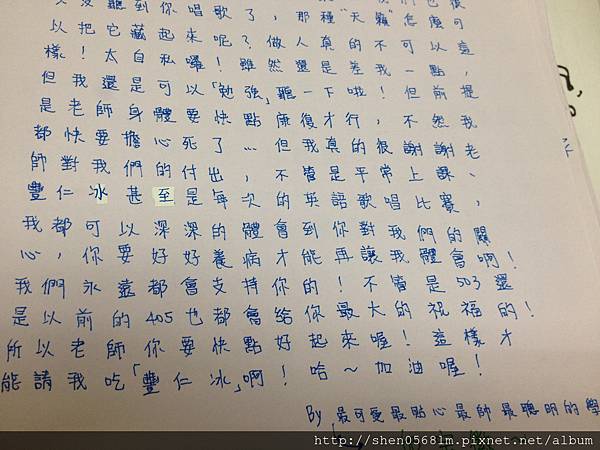 沒聽到你唱歌了,那種"天籟"怎麼可
以把它藏起來呢?做人真的不可以這
樣!太自私囉!雖然還是差我一點,
但我還是可以「勉強」聽一下啦!但前提
是老師身體要快點康復才行,不然我
都快要擔心死了...但我真的很謝謝老
師對我們的付出,不管是平常上課、
豐仁冰甚至是每次的英語歌唱比賽,
我都可以深深的體會到你對我們的關
心,你要好好養病才能再讓我體會啊!
我們永遠都會支持你的!不管是503還
是以前的405也都會給你最大的祝福的!
所以老師你要快點好起來喔!這樣才
能請我吃「豐仁冰」啊!哈~加油喔!
By 最可愛最貼心最帥最聰明的學
http://shen0568lm.pixnet.net/album